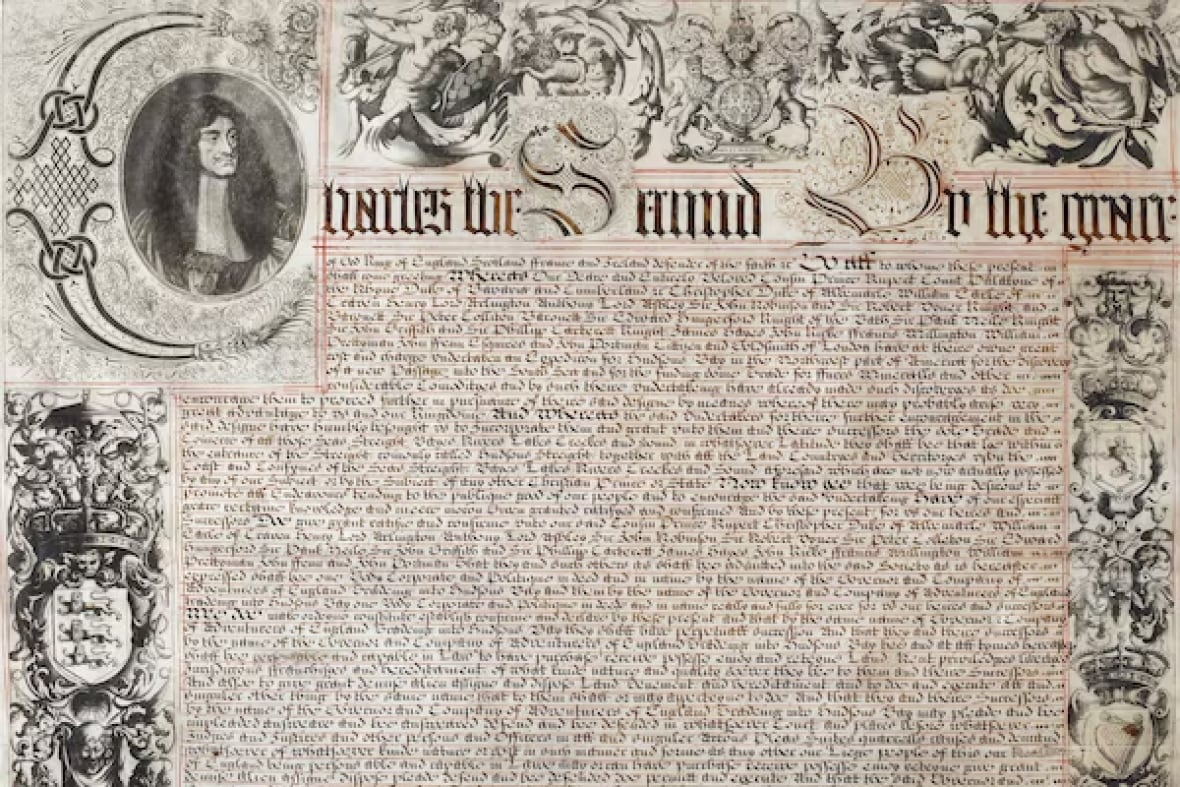 Charles the Second By the grace
of God King of England Scotland ffrance and Ireland defender of the faith &c To all to whome these present
shall come greeting Whereas Our Deare and Entirely Beloved Cousin Prince Rupert Count Palatyne of
the Rhyne Duke of Bavaria and Cumberland &c Christopher Duke of Albemarle William Earle of
Craven Henry Lord Arlington Anthony Lord Ashley Sir John Robinson and Sir Robert Vyner Knight and
Baronett Sir Peter Colliton Baronett Sir Edward Hungerford Knight of the Bath Sir Paul Neile Knight
Sir John Griffith and Sir Phillipp Carterett Knight James Hayes John Kirke ffrancis Millington William
Prettyman John ffenn Esquires and John Portman Cittizen and Goldsmith of London have att theire owne great
cost and charge undertaken an Expedicion for Hudsons Bay in the Northwest part of America for the discovery
of a new Passage into the South Sea and for the finding some Trade for ffurrs Mineralls and other
considerable Comodityes and by such theire undertaking have already made such discoveryes as doe
encourage them to proceed further in pursuance of theire said designe by meanes whereof there may probably arise very
great advantage to us and our Kingdome And Whereas the said Undertakers for theire further encouragement in the
said designe have humbly besought us to Incorporate them and grant unto them and theire successors the sole Trade and
Comerce of all those Seas Streight Bayes Rivers Lakes Creekes and Sound in whatsoever Latitude they shall bee that lye within
the entrance of the Streight comonly called Hudsons Streight together with all the Land Countryes and Territoryes upon the
Coast and Confynes of the Seas Streight Bayes Lakes Rivers Creekes and Sound aforesaid which are not now actually possessed
by any of our Subject or by the Subject of any other Christian Prince or State Now know yee that wee being desirous to
promote all Endeavour tending to the publique good of our people and to encourage the said undertaking Have of our especiall
grace certaine knowledge and meere mocion Given granted ratifyed and confirmed And by these present for us our heires and
Successors Doe give grant ratifie and confirme unto our said Cousin Prince Rupert Christopher Duke of Albemarle William
Earle of Craven Henry Lord Arlington Anthony Lord Ashley Sir John Robinson Sir Robert Vyner Sir Peter Colleton Sir Edward
Hungerford Sir Paul Neile Sir John Griffith and Sir Phillipp Carterett James Hayes John Kirke ffrancis Millington William
Prettyman John ffenn and John Portman That they and such others as shall bee admitted into the said Society as is hereafter
expressed shall bee one Body Corporate and Politique in deed and in name by the name of the Governor and Company of
Adventurers of England Tradeing into Hudsons Bay and them by the name of the Governor and Company of Adventurers of England
Tradeing into Hudsons Bay one Body Corporate and Politique in deede and in name really and fully for ever for us our heires and successors
Wee Doe make ordeyne constitute establish confirme and declare by these present and that by the same name of Governor & Company
of Adventurers of England Tradeing into Hudsons Bay they shall have perpetuall succession And that they and theire successors
by the name of the Governor and Company of Adventurers of England Tradeing into Hudsons Bay bee and at all tymes hereafter
shall bee personable and capable in Law to have purchase receive possesse enjoy and reteyne Land Rent priviledges
and hereditament of what kinde nature or quality soever they bee to them and theire Successors
And also to give grant demise alien assigne and dispose Land Tenement and hereditament and to doe and execute all and
singuler other thing by the same name that to them shall or may apperteyne to doe And that they and theire Successors
by the name of the Governor and Company of Adventurers of England Tradeing into Hudsons Bay may pleade and bee
impleaded answeare and bee answeared defend and bee defended in whatsoever Court and place before whatsoever
Judges and Justices and other persons and Officers in all and singuler Accions Pleas Suites quarrells causes and demand
whatsoever of whatsoever kinde nature or sort in such manner and forme as any other our Liege people of this our
of England being persons able and capable in Lawe may or can have purchase receive possesse enjoy reteyne give grant
demise alien assigne dispose pleade defend and bee defended doe permitt and execute And that the said Governor and